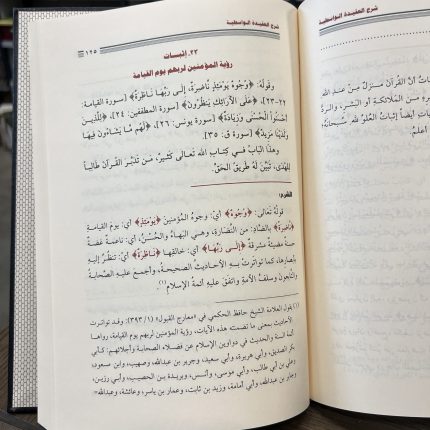 شرح العقيدة الواسطية
١٢٥
٢٣. إثبات
رؤية المؤمنين لربهم يوم القيامة
وقولُهُ: ﴿وُجُوهٌ يَوْمَئِذٍ نَّاضِرَةٌ، إِلَى رَبِّهَا نَاظِرَةٌ﴾ [سورة القيامة:
٢٢-٢٣]، ﴿عَلَى الأَرَائِكِ يَنظُرُونَ﴾ [سورة المطففين: ٢٤]، ﴿لِّلَّذِينَ
أَحْسَنُواْ الْحُسْنَى وَزِيَادَةٌ﴾ [سورة يونس: ٢٦]، ﴿لَهُم مَّا يَشَاءُونَ فِيهَا
وَلَدَيْنَا مَزِيدٌ﴾ [سورة ق: ٣٥].
وهذا البابُ في كتابِ الله تعالى كثيرٌ، مَن تَدَبَّرَ القرآنَ طالباً
للهُدَى، تَبَيَّنَ لَهُ طَرِيقُ الحقِّ.
الشرح:
قولُهُ تَعَالَى: ﴿وُجُوهٌ﴾ أي: وجوهُ المؤمنين ﴿يَوْمَئِذٍ﴾ أي: يوم القيامةِ
﴿نَّاضِرَةٌ﴾ بالضَّادِ: من النَّضَارَةِ، وهي البَهَاءُ والحُسْنُ، أي: ناعمةٌ غَضَّةٌ
حسنةٌ مضيئةٌ مشرقةٌ ﴿إِلَى رَبِّهَا﴾ أي: خالقِها ﴿نَاظِرَةٌ﴾ أي: تنظرُ إليهِ
بأبصارِها، كما تواترتْ به الأحاديثُ الصحيحةُ، وأجمع عليه الصَّحابةُ
والتَّابعونَ وسلفُ الأمةِ واتفقَ عليه أئمةُ الإسلامِ(١).
(١) يقول العلامة الشيخ حافظ الحكمي في «معارج القبول» (١/ ٣٩٣): وقد تواترت
الأحاديث بمعنى ما تضمنته هذه الآيات، رؤية المؤمنين لربهم يوم القيامة، رواها
أئمة السنة والحديث في دواوين الإسلام عن فضلاء الصحابة وأجلائهم: كأبي
بكر الصديق، وأبي هريرة، وأبي سعيد، وجرير بن عبدالله، وصهيب، وابن مسعود،
وعلي بن أبي طالب، وأبي موسى، وأنس، وبريدة بن الحصيب، وأبي رزين،
وجابر بن عبدالله، وأبي أمامة، وزيد بن ثابت، وعمار بن ياسر، وعائشة، وعبدالله=
شرح العقيدة الواسطية
أنَّ القرآنَ مُنزَلٌ من عندِ الله
من الملائكةِ أو البشرِ، والردُّ
أيضاً إثباتُ العُلُوِّ لله سُبحانَهُ
أعلم.